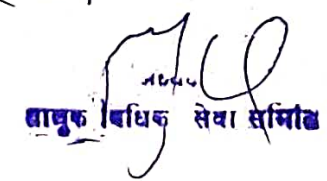 अध्यक्ष
तालुक विधिक सेवा समिति